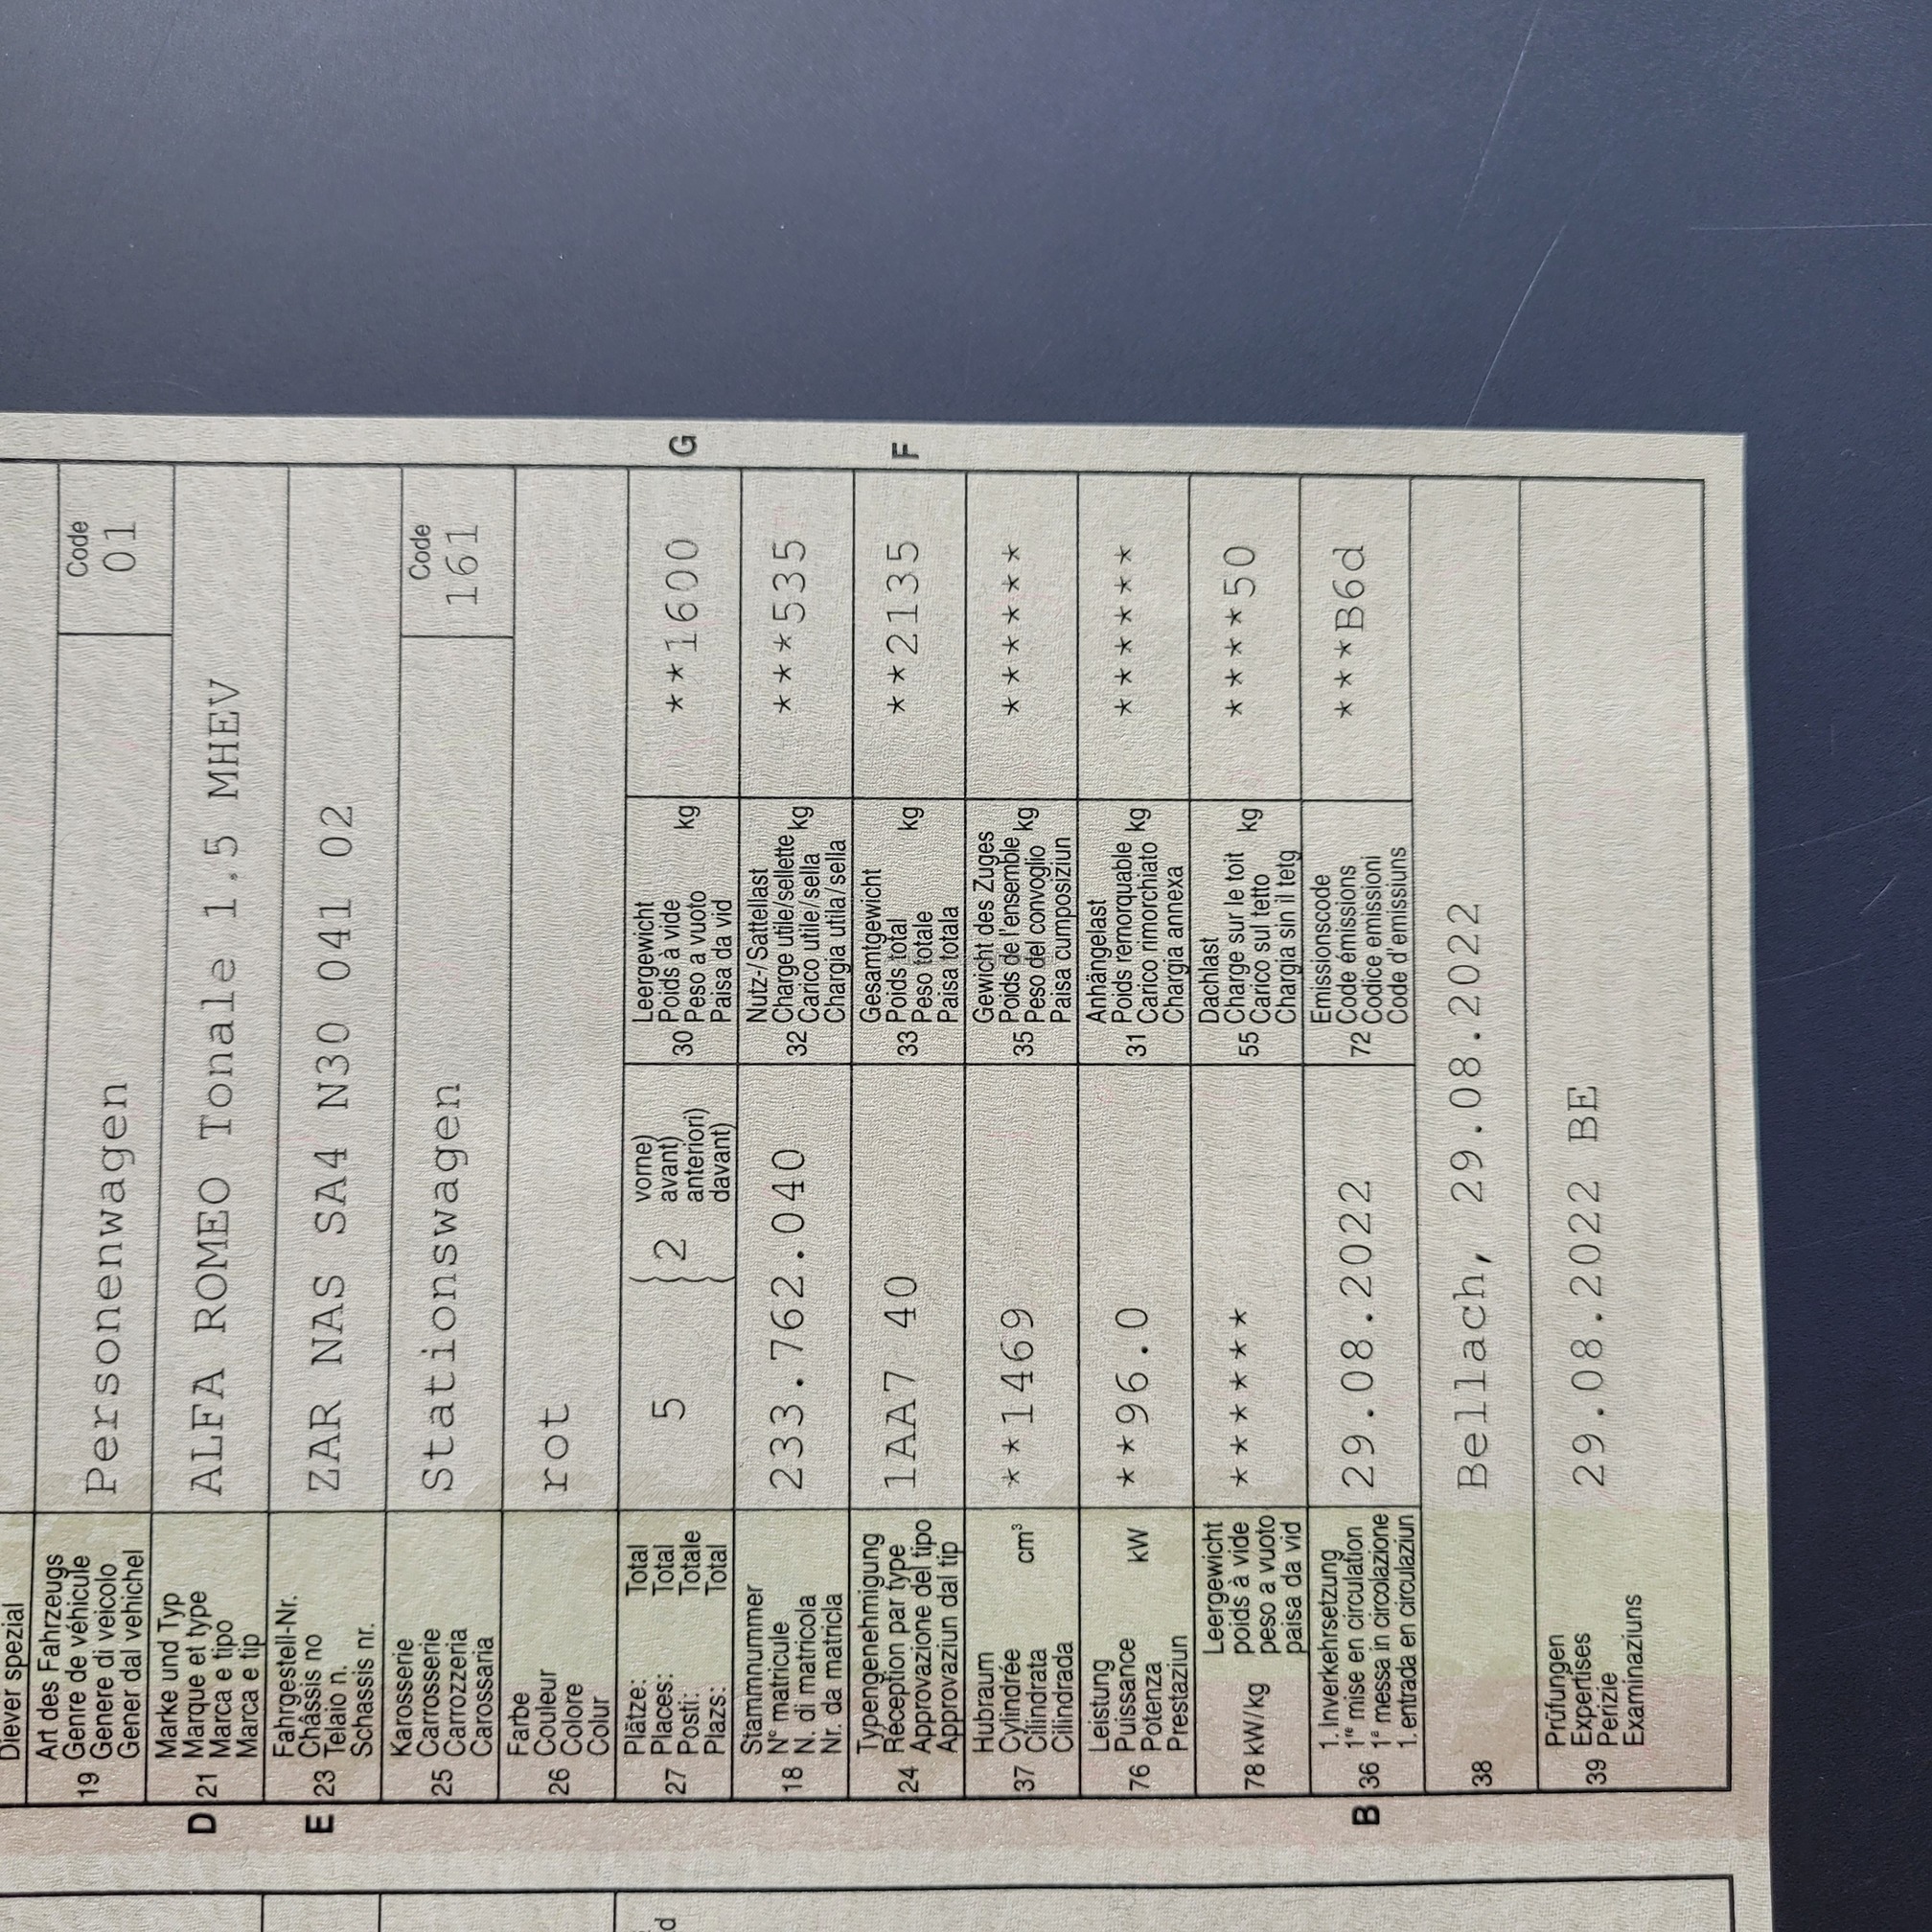 Diever spezial
Art des Fahrzeugs
19 Genre de véhicule
Genere di veicolo
Gener dal vehichel
Personenwagen
Code
01
D 21 Marke und Typ
Marque et type
Marca e tipo
Marca e tip
ALFA ROMEO Tonale 1.5 MHEV
E 23 Fahrgestell-Nr.
Châssis no
Telaio n.
Schassis nr.
ZAR NAS SA4 N30 041 02
25 Karosserie
Carrosserie
Carrozzeria
Carossaria
Stationswagen
Code
161
26 Farbe
Couleur
Colore
Colur
rot
27 Plätze: Total
Places: Total
Posti: Totale
Plazs: Total
5 { 2 vorne)
avant)
anteriori)
davant)
30 Leergewicht
Poids à vide
Peso a vuoto kg
Paisa da vid
**1600 G
18 Stammnummer
N° matricule
N. di matricola
Nr. da matricla
233.762.040
32 Nutz-/Sattellast
Charge utile/sellette kg
Carico utile/sella
Chargia utila/sella
***535
24 Typengenehmigung
Réception par type
Approvazione del tipo
Approvaziun dal tip
1AA7 40
33 Gesamtgewicht
Poids total kg
Peso totale
Paisa totala
**2135 F
37 Hubraum
Cylindrée cm³
Cilindrata
Cilindrada
**1469
35 Gewicht des Zuges
Poids de l'ensemble kg
Peso del convoglio
Paisa cumposiziun
******
76 Leistung
Puissance kW
Potenza
Prestaziun
**96.0
31 Anhängelast
Poids remorquable kg
Carico rimorchiato
Chargia annexa
******
78 kW/kg Leergewicht
poids à vide
peso a vuoto
paisa da vid
******
55 Dachlast
Charge sur le toit kg
Carico sul tetto
Chargia sin il tetg
****50
B 36 1. Inverkehrsetzung
1re mise en circulation
1a messa in circolazione
1. entrada en circulaziun
29.08.2022
72 Emissionscode
Code émissions
Codice emissioni
Code d'emissiuns
***B6d
38 Bellach, 29.08.2022
39 Prüfungen
Expertises
Perizie
Examinaziuns
29.08.2022 BE